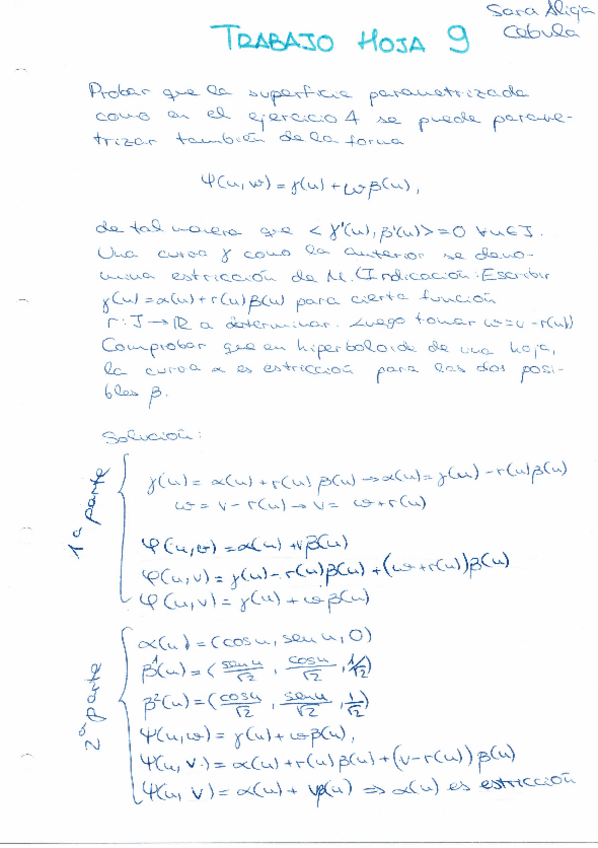 Sara Alicja
Cebula
TRABAJO HOJA 9
Probar que la superficie parametrizada
como en el ejercicio 4 se puede parame-
trizar también de la forma
Ψ(u,w) = γ(u) + wβ(u),
de tal manera que < γ'(u), β'(u)> = 0 ∀u∈J.
Una curva γ como la anterior se deno-
mina estricción de M. (Indicación: Escribir
γ(u) = α(u) + r(u)β(u) para cierta función
r: J → ℝ a determinar. Luego tomar w = v - r(u))
Comprobar que en hiperboloide de una hoja,
la curva α es estricción para las dos posi-
bles β.
Solución:
1ª parte
γ(u) = α(u) + r(u) β(u) → α(u) = γ(u) - r(u)β(u)
w = v - r(u) → v = w + r(u)
φ(u,w) = α(u) + vβ(u)
φ(u,v) = γ(u) - r(u)β(u) + (w + r(u))β(u)
φ(u,v) = γ(u) + wβ(u)
2ª parte
α(u) = (cos u, sen u, 0)
β¹(u) = (sen u/√2, cos u/√2, 1/√2)
β²(u) = (cos u/√2, sen u/√2, 1/√2)
Ψ(u,w) = γ(u) + wβ(u),
Ψ(u,v) = α(u) + r(u)β(u) + (v - r(u))β(u)
Ψ(u,v) = α(u) + vβ(u) ⇒ α(u) es estricción